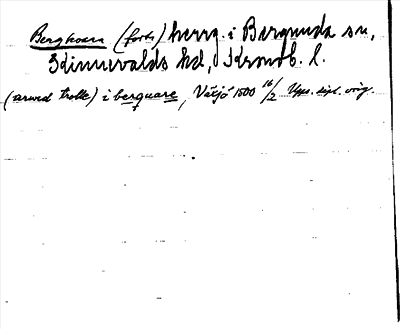 Bergkvara (forts.) herrg. i Bergunda sn,
Kinnevalds hd, Kronob. l.
(arwed trolle) i berquare, Växjö 1500 16/2 Upps. dipl. orig.